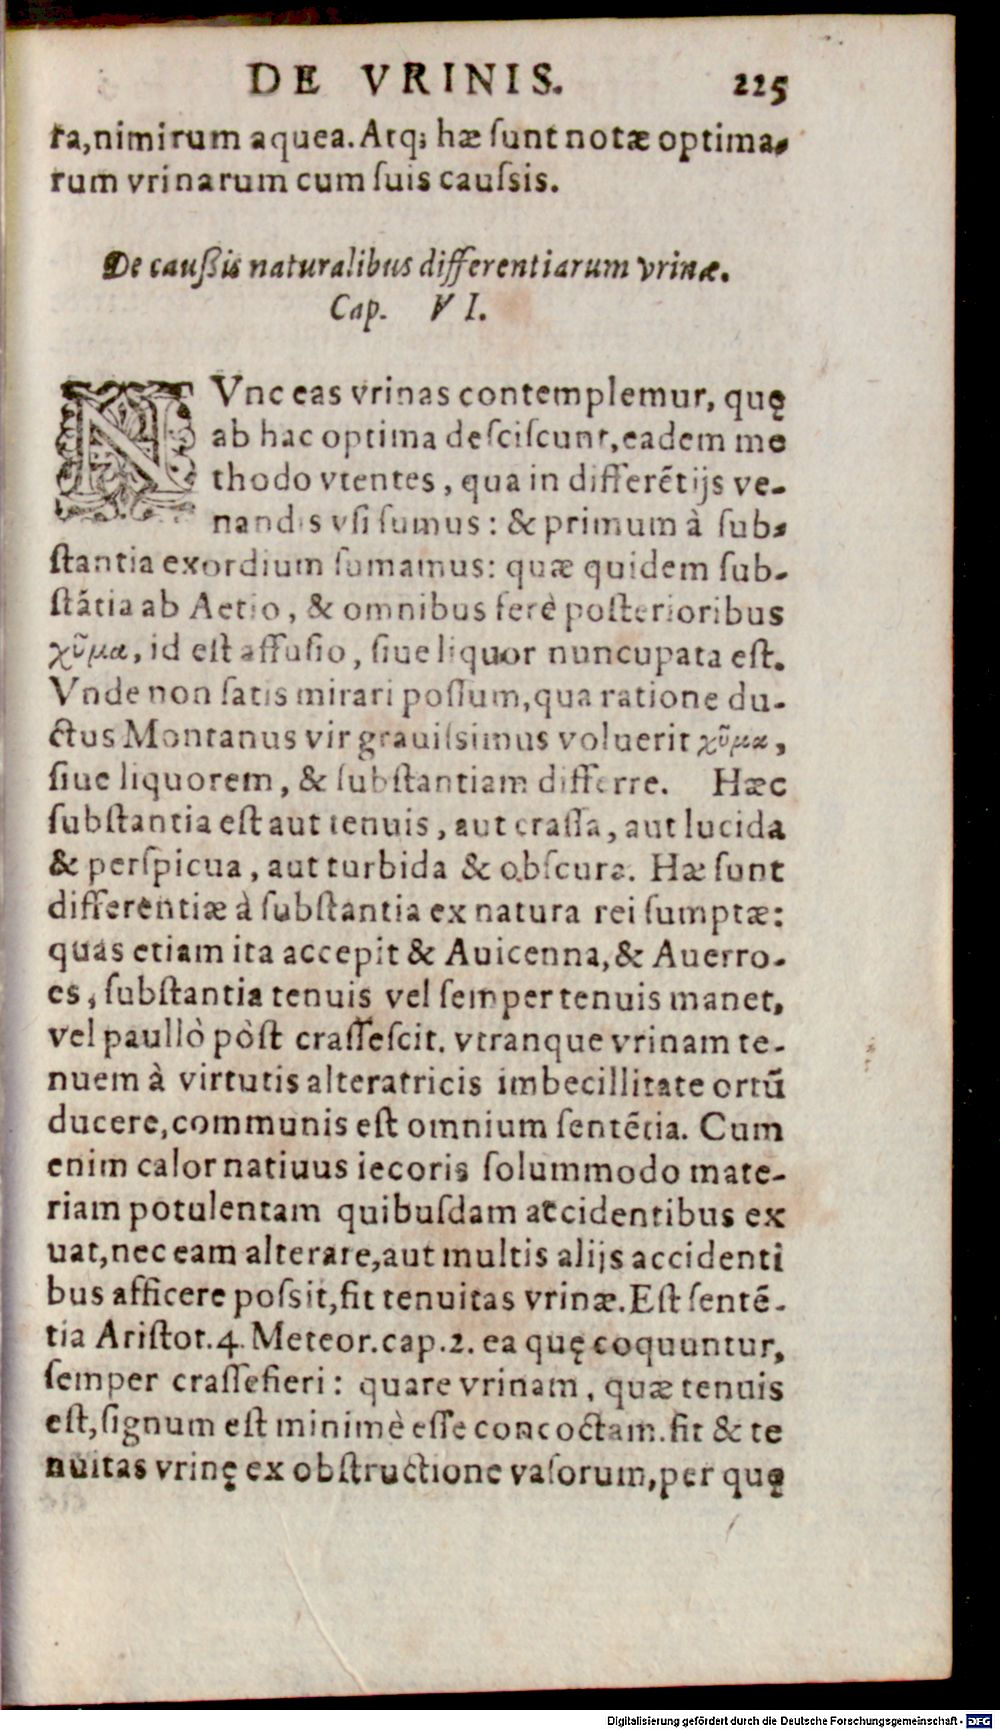 DE VRINIS. 225
ra,nimirum aquea. Atq; hæ ſunt notæ optima-
rum vrinarum cum ſuis cauſsis.
De caußis naturalibus differentiarum vrinæ.
Cap. VI.
NVnc eas vrinas contemplemur, quę
ab hac optima deſciſcunt,eadem me
thodo vtentes, qua in differẽtijs ve-
nandis vſi ſumus: & primum à ſub-
ſtantia exordium ſumamus: quæ quidem ſub-
ſtãtia ab Aetio, & omnibus ferè poſterioribus
χῦμα, id eſt affuſio, ſiue liquor nuncupata eſt.
Vnde non ſatis mirari poſſum,qua ratione du-
ctus Montanus vir grauiſsimus voluerit χῦμα,
ſiue liquorem, & ſubſtantiam differre. Hæc
ſubſtantia eſt aut tenuis, aut craſſa, aut lucida
& perſpicua, aut turbida & obſcura. Hæ ſunt
differentiæ à ſubſtantia ex natura rei ſumptæ:
quas etiam ita accepit & Auicenna,& Auerro-
es, ſubſtantia tenuis vel ſemper tenuis manet,
vel paullò pòſt craſſeſcit. vtranque vrinam te-
nuem à virtutis alteratricis imbecillitate ortũ
ducere,communis eſt omnium ſentẽtia. Cum
enim calor natiuus iecoris ſolummodo mate-
riam potulentam quibuſdam accidentibus ex
uat,nec eam alterare,aut multis alijs accidenti
bus afficere poſsit,fit tenuitas vrinæ. Eſt ſentẽ-
tia Ariſtot. 4. Meteor. cap. 2. ea quę coquuntur,
ſemper craſſefieri: quare vrinam, quæ tenuis
eſt,ſignum eſt minimè eſſe concoctam. fit & te
nuitas vrinę ex obſtructione vaſorum,per quę
Digitalisierung gefördert durch die Deutsche Forschungsgemeinschaft - DFG